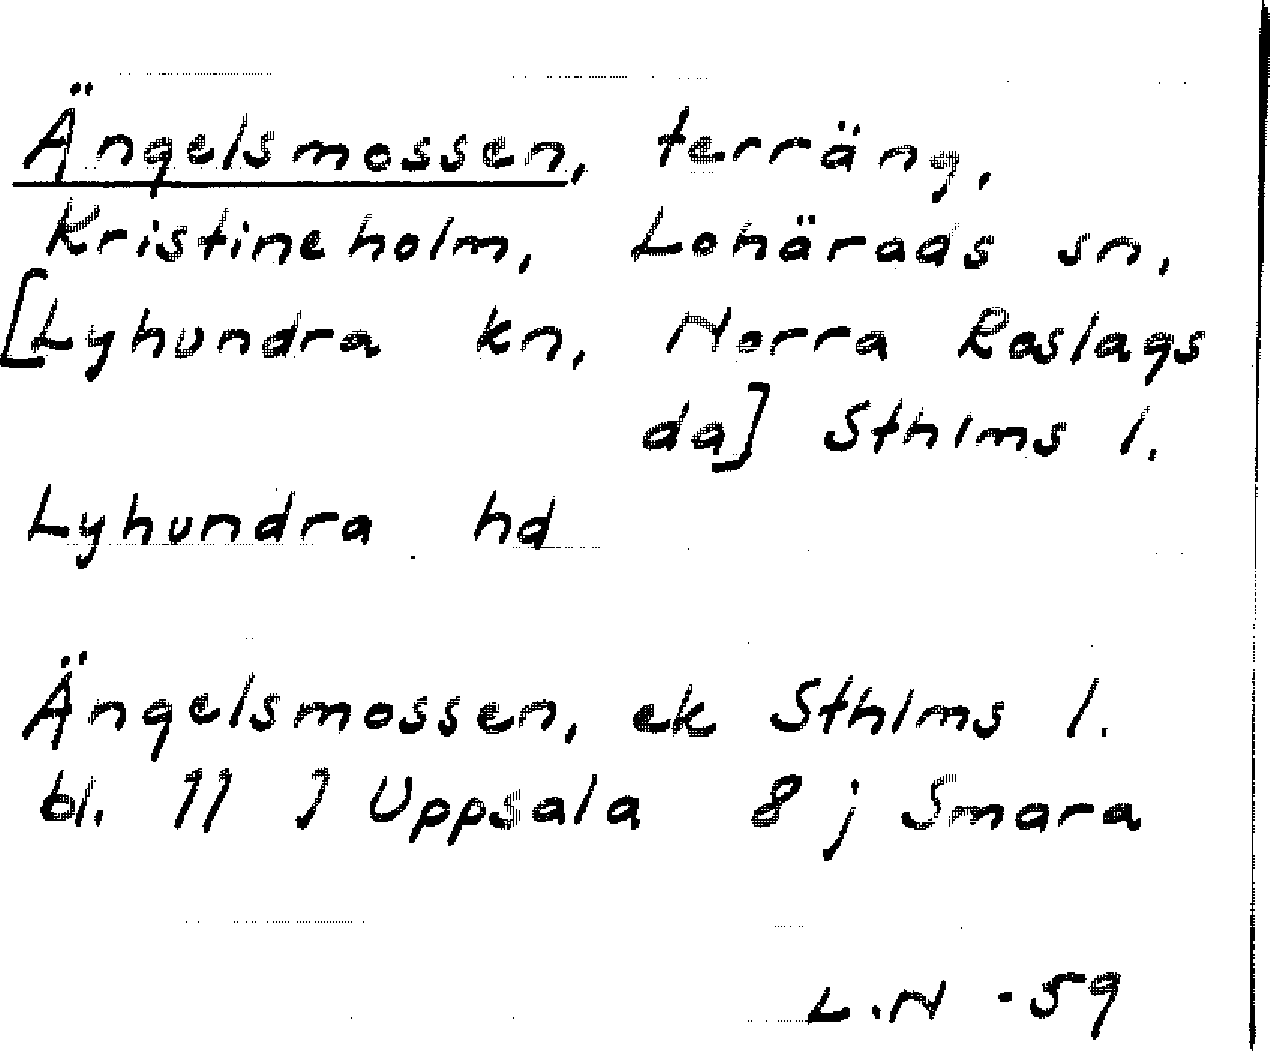 Ängelsmossen, terräng,
Kristineholm, Lohärads sn,
[Lyhundra kn, Norra Roslags
da] Sthlms l.
Lyhundra hd
Ängelsmossen, ek Sthlms l.
bl. 11 I Uppsala 8 j Smara
L.N -59